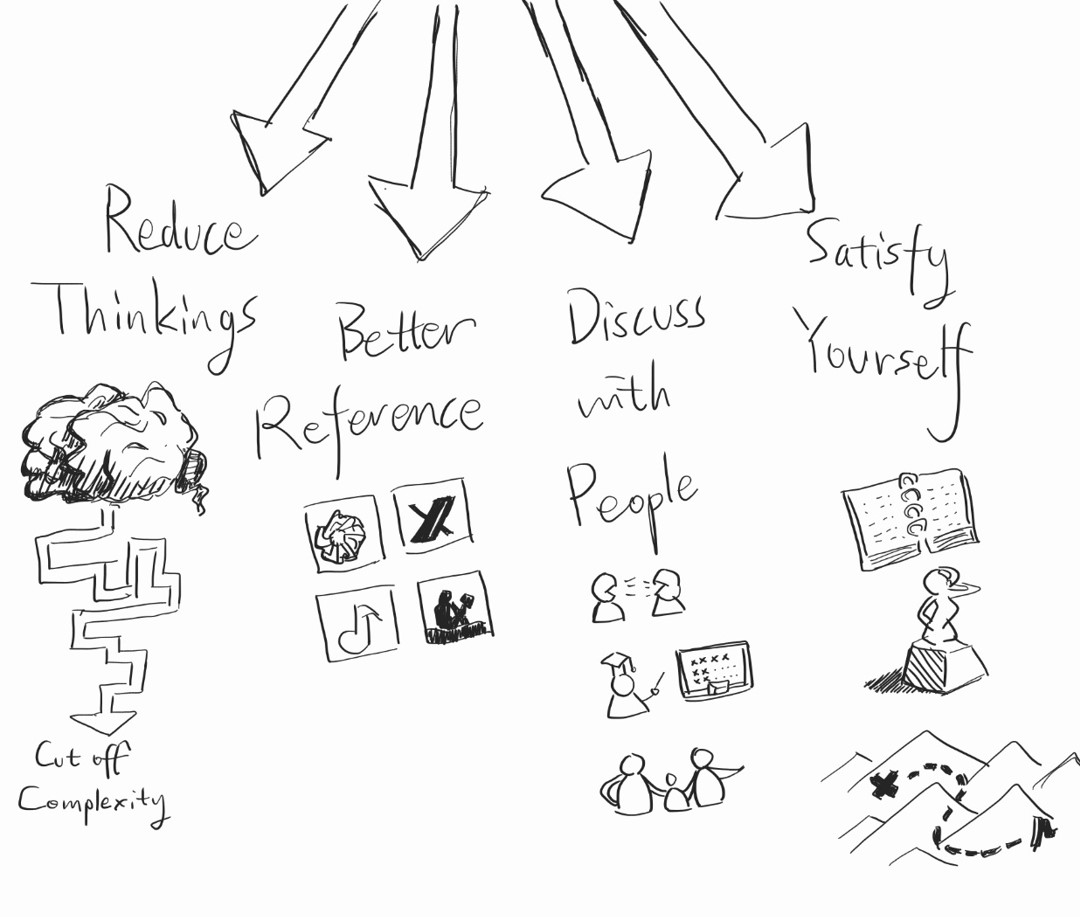 Reduce
Thinkings
Cut off
Complexity
Better
Reference
X
Discuss
with
People
Satisfy
Yourself